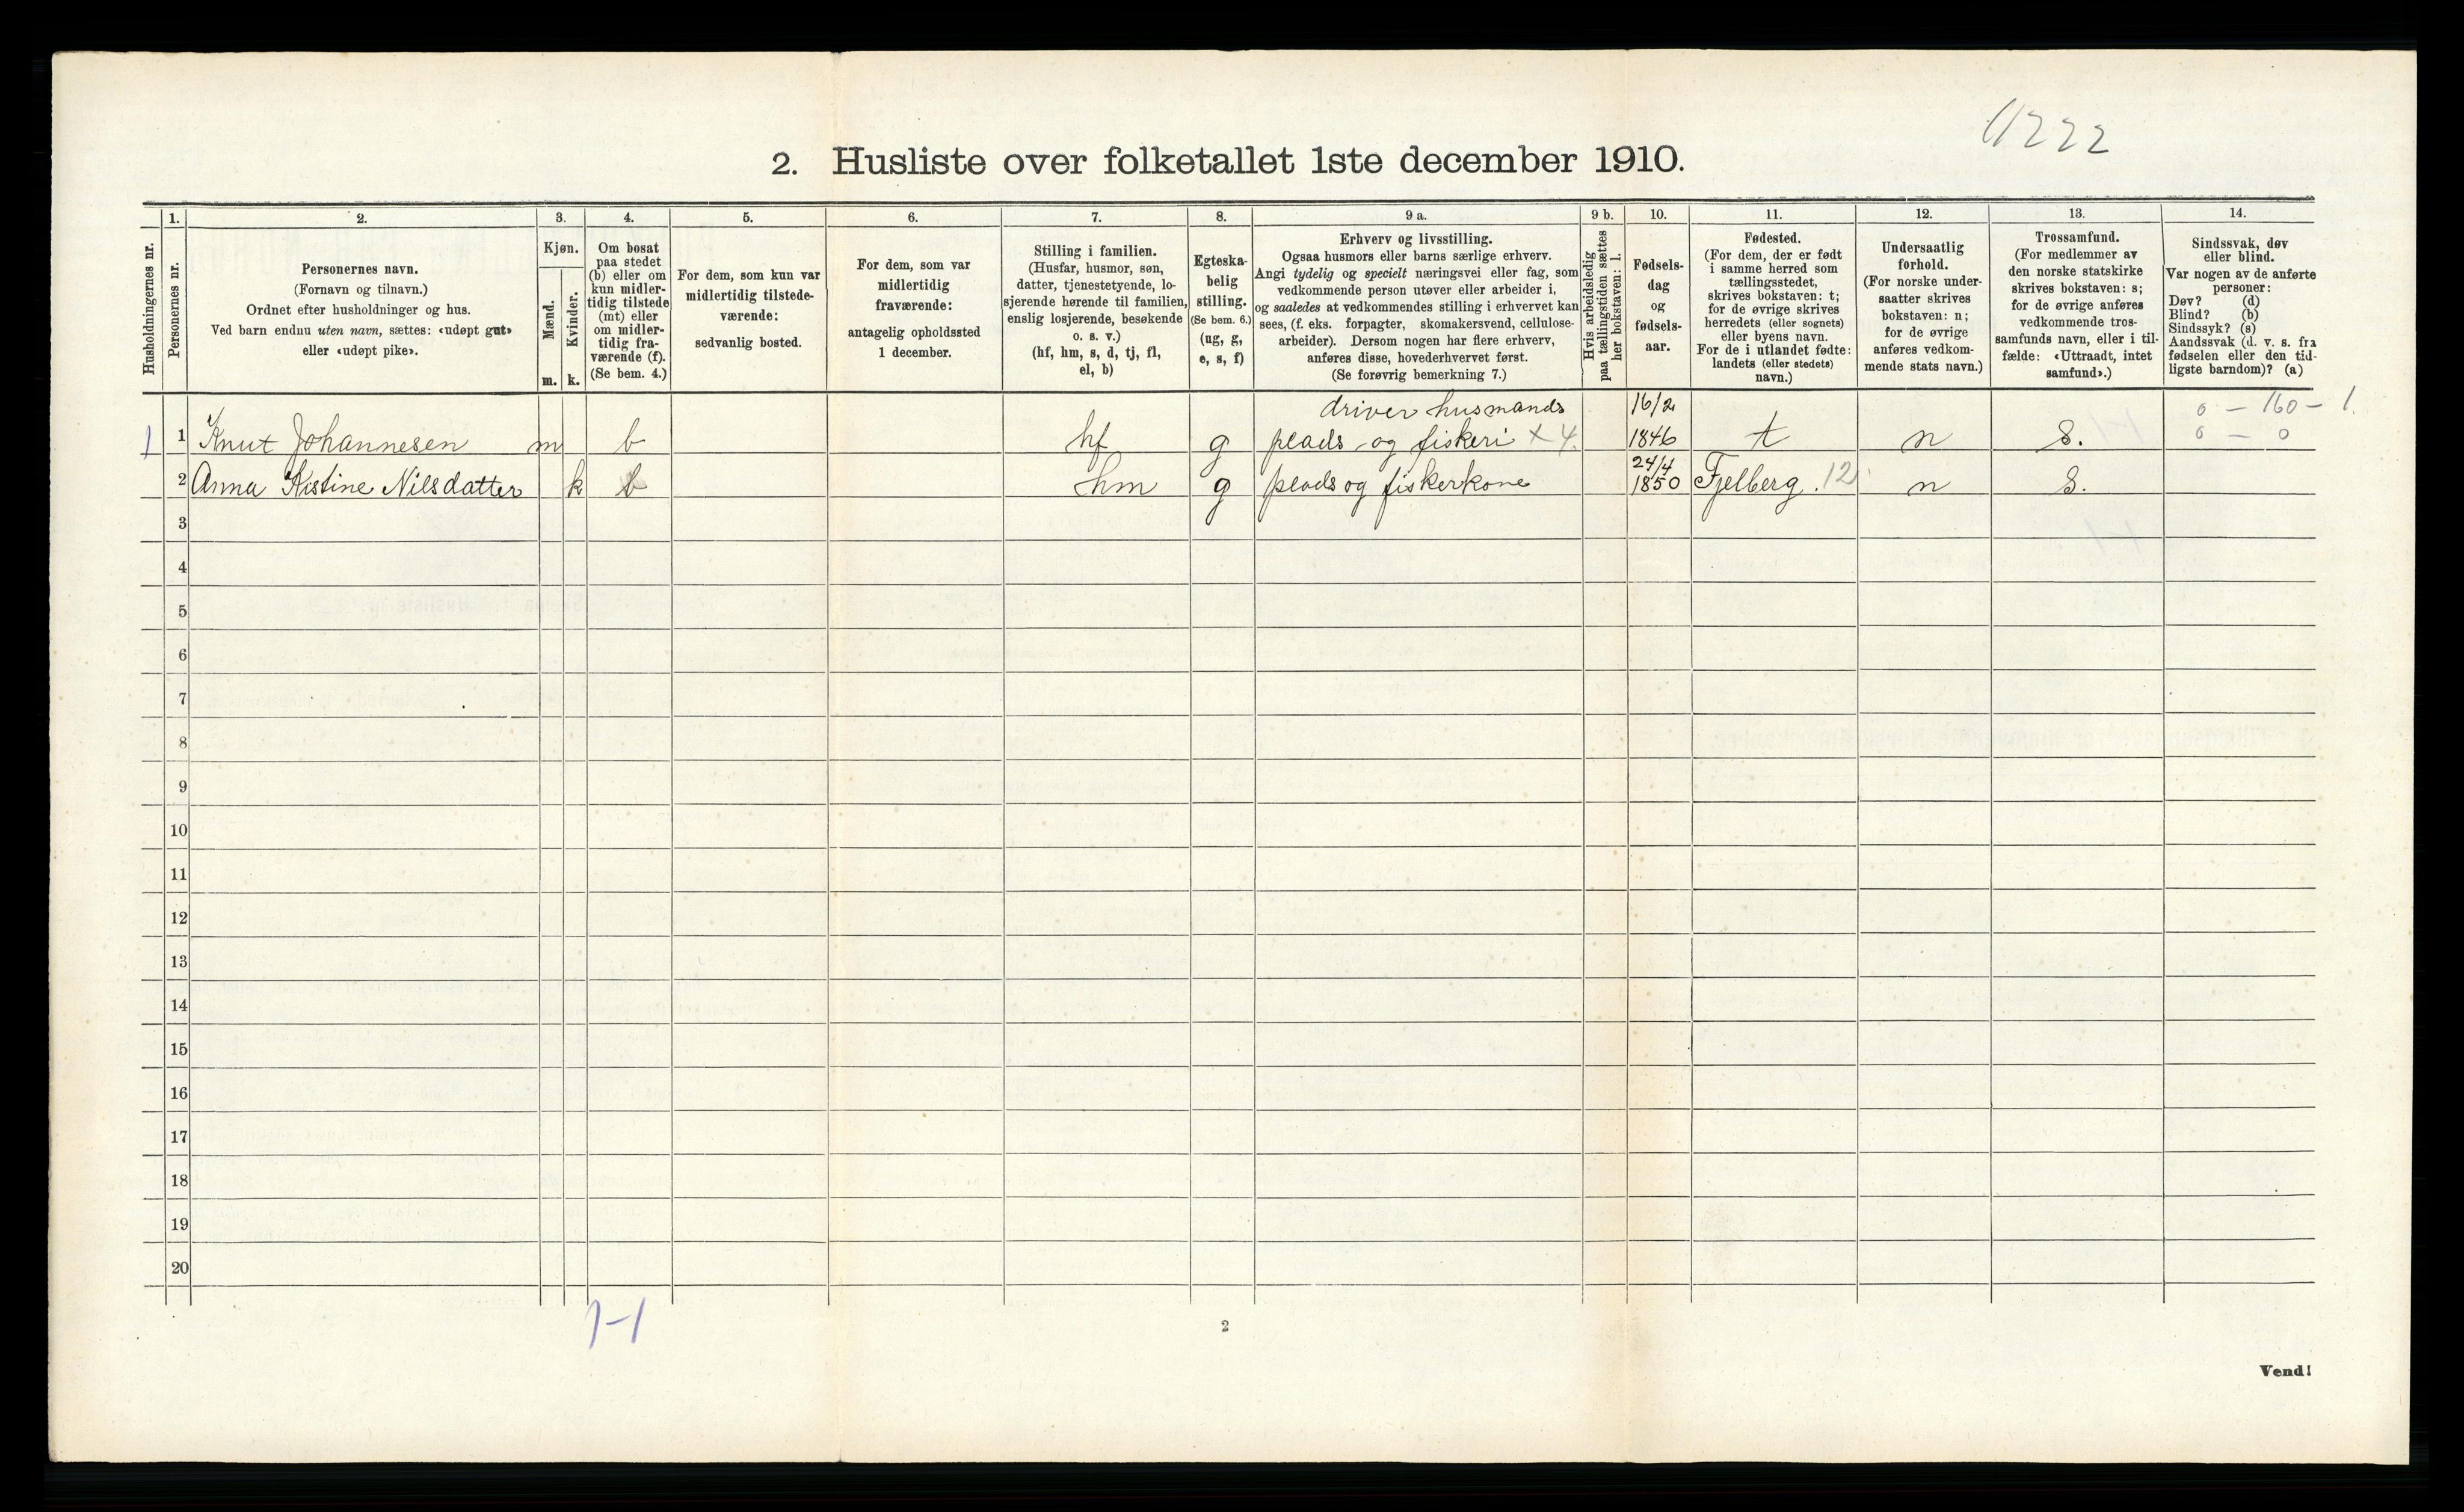 11222
2. Husliste over folketallet 1ste december 1910.
Husholdningernes nr.
1. Personernes nr.
2. Personernes navn.
(Fornavn og tilnavn.)
Ordnet efter husholdninger og hus.
Ved barn endnu uten navn, sættes: «udøpt gut»
eller «udøpt pike».
3. Kjøn.
Mænd. m.
Kvinder. k.
4. Om bosat
paa stedet
(b) eller om
kun midler-
tidig tilstede
(mt) eller
om midler-
tidig fra-
værende (f).
(Se bem. 4.)
5. For dem, som kun var
midlertidig tilstede-
værende:
sedvanlig bosted.
6. For dem, som var
midlertidig
fraværende:
antagelig opholdssted
1 december.
7. Stilling i familien.
(Husfar, husmor, søn,
datter, tjenestetyende, lo-
sjerende hørende til familien,
enslig losjerende, besøkende
o. s. v.)
(hf, hm, s, d, tj, fl,
el, b)
8. Egteska-
belig
stilling.
(Se bem. 6.)
(ug, g,
e, s, f)
9 a. Erhverv og livsstilling.
Ogsaa husmors eller barns særlige erhverv.
Angi tydelig og specielt næringsvei eller fag, som
vedkommende person utøver eller arbeider i,
og saaledes at vedkommendes stilling i erhvervet kan
sees, (f. eks. forpagter, skomakersvend, cellulose-
arbeider). Dersom nogen har flere erhverv,
anføres disse, hovederhvervet først.
(Se forøvrig bemerkning 7.)
9 b. Hvis arbeidsledig
paa tællingstiden sættes
her bokstaven: l.
10. Fødsels-
dag
og
fødsels-
aar.
11. Fødested.
(For dem, der er født
i samme herred som
tællingsstedet,
skrives bokstaven: t;
for de øvrige skrives
herredets (eller sognets)
eller byens navn.
For de i utlandet fødte:
landets (eller stedets)
navn.)
12. Undersaatlig
forhold.
(For norske under-
saatter skrives
bokstaven: n;
for de øvrige
anføres vedkom-
mende stats navn.)
13. Trossamfund.
(For medlemmer av
den norske statskirke
skrives bokstaven: s;
for de øvrige anføres
vedkommende tros-
samfunds navn, eller i til-
fælde: «Uttraadt, intet
samfund».)
14. Sindssvak, døv
eller blind.
Var nogen av de anførte
personer:
Døv? (d)
Blind? (b)
Sindssyk? (s)
Aandssvak (d. v. s. fra
fødselen eller den tid-
ligste barndom)? (a)
driver husmands 16/2 0 – 160 – 1.
1 1 Knut Johannesen m b hf g plads og fiskeri x 4. 1846 t n S. 0 – 0
24/4
2 Anna Kistine Nilsdatter k b hm g plads og fiskerkone 1850 Fjelberg. 12 n S.
3
4
5
6
7
8
9
10
11
12
13
14
15
16
17
18
19
20
1-1
2
Vend!